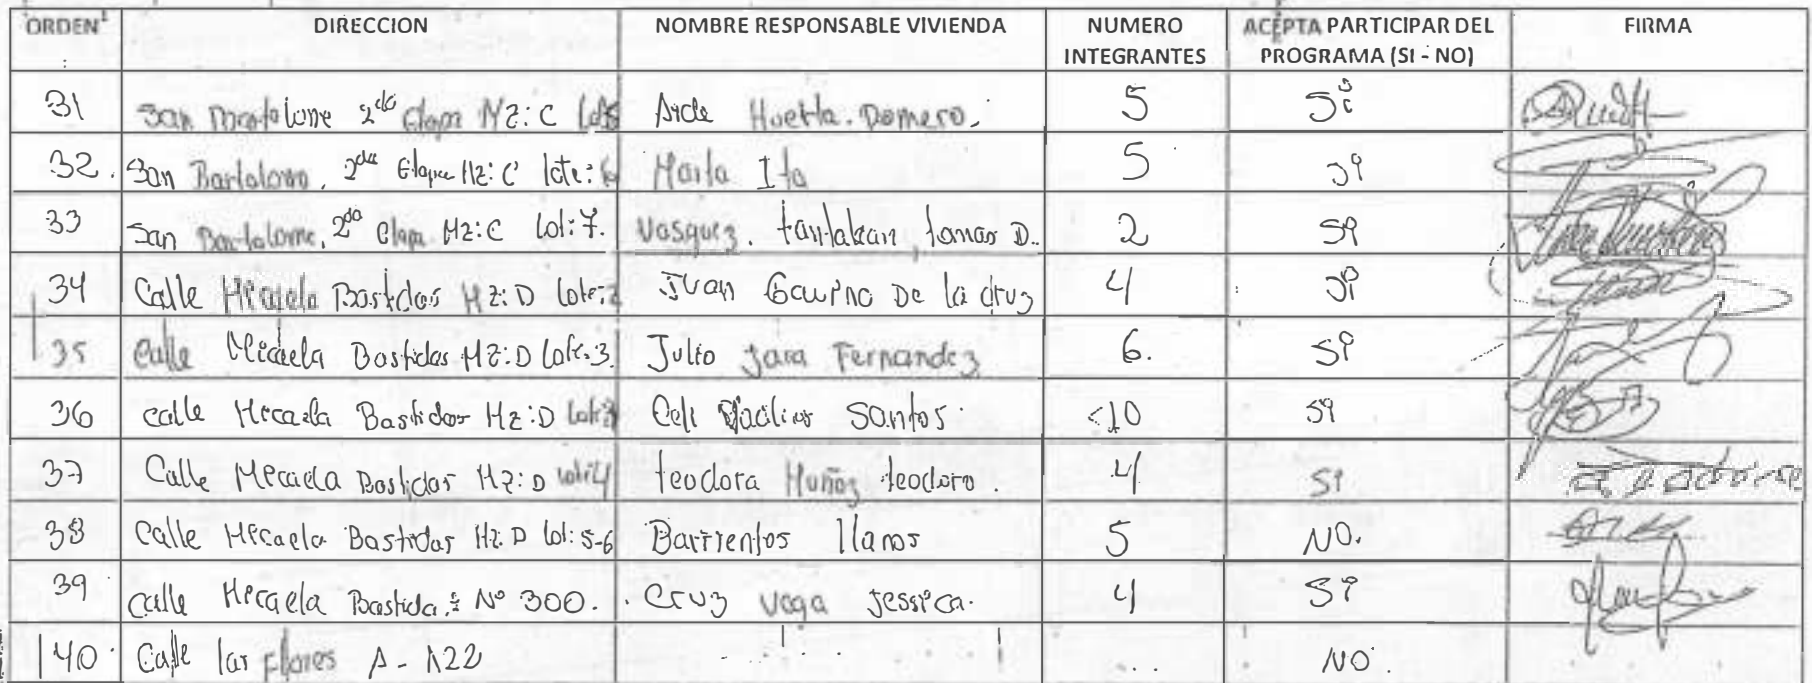 ORDEN¹ DIRECCION NOMBRE RESPONSABLE VIVIENDA NUMERO INTEGRANTES ACEPTA PARTICIPAR DEL PROGRAMA (SI - NO) FIRMA
31 San Bartolome 2da Etapa Mz: C Huerta. 5 Si
32. San Bartolome, 2da Etapa Mz: C lote: 6 Ito 5 Si
33 San Bartolome, 2da Etapa Mz: C lot: 7. Vasquez. D.. 2 Si
34 Calle Micaela Bastidas Mz: D lote: 2 Juan De la cruz 4 Si
35 Calle Micaela Bastidas Mz: D lote: 3. Julio Jara Fernandez 6. Si
36 calle Micaela Bastidas Mz: D Santos. <10 Si
37 Calle Micaela Bastidas Mz: D lot: 4 teodora Muñoz teodoro. 4 Si
38 Calle Micaela Bastidas Mz: D lot: 5-6 Barrientos llanos 5 NO.
39 calle Micaela Bastida: Nº 300. Cruz Vega Jessica. 4 Si
40 Calle las Flores A - 122 NO.